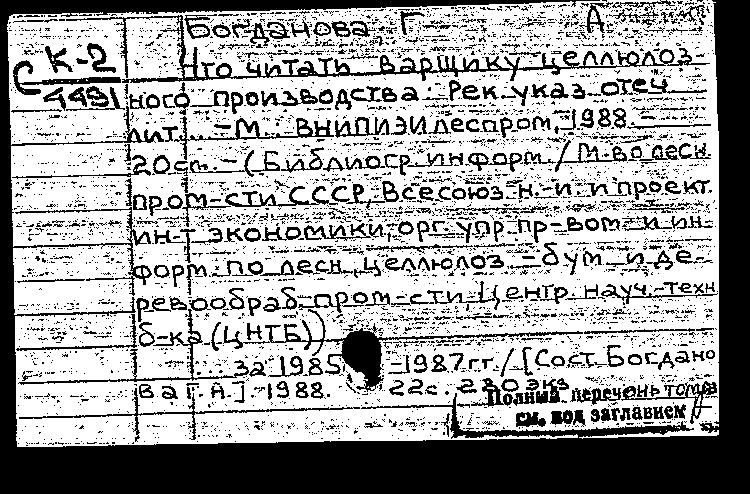 Богданова Г А
С К-2
4491
Что читать варщику целлюлоз-
ного производства: Рек. указ. отеч.
лит. ... - М.: ВНИПИЭИлеспром, 1988. -
20 см. - (Библиогр. информ. / М-во лесн.
пром-сти СССР, Всесоюз. н.-и. и проект.
ин-т экономики, орг. упр. пр-вом и ин-
форм. по лесн., целлюлоз.-бум. и де-
ревообраб. пром-сти, Центр. науч.-техн.
б-ка (ЦНТБ))
... за 1985 -1987 гг. / [Сост. Богдано
ва Г.А.]. -1988. 22 с. 280 экз
Полный перечень томов
см. под заглавием